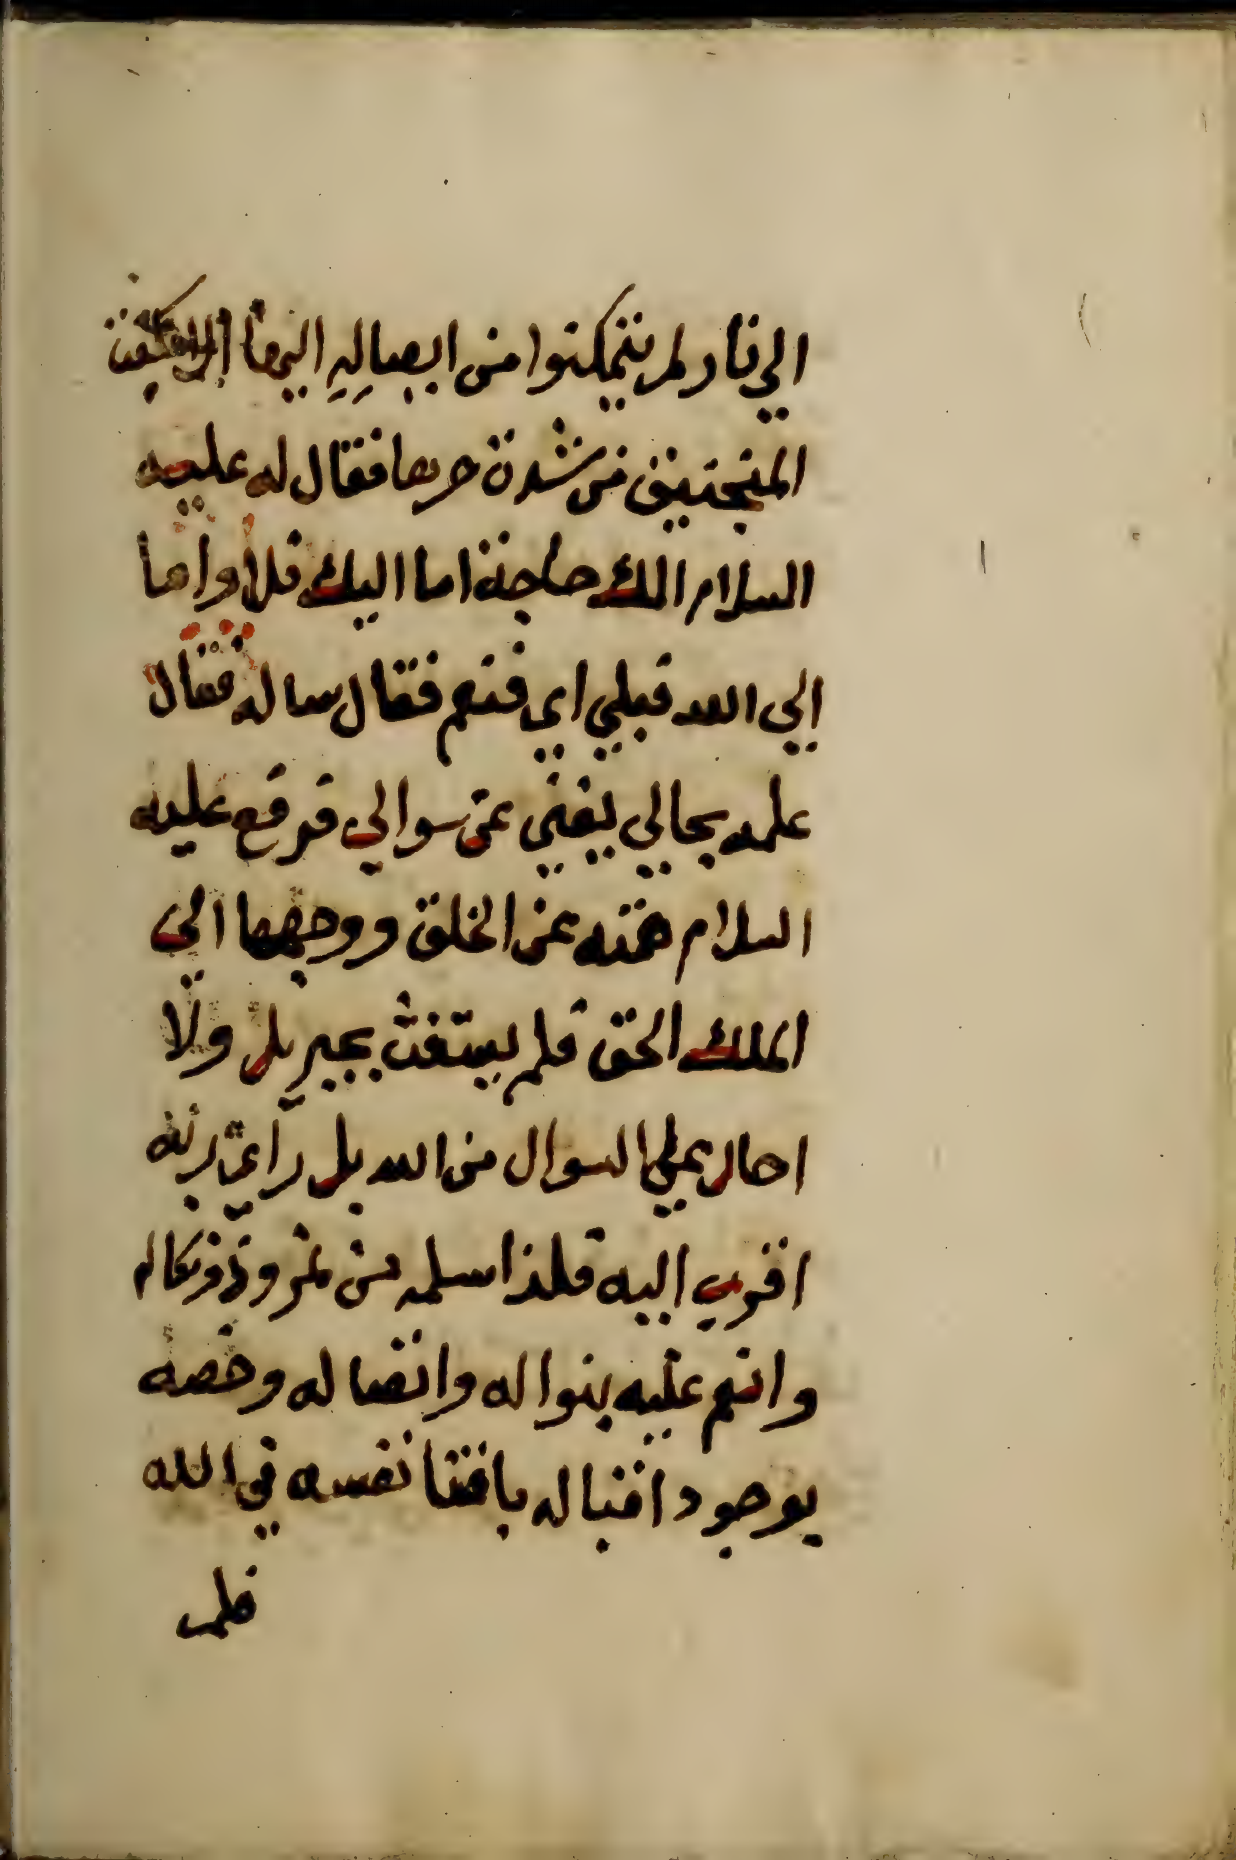 الي نار لم يتمكنوا من ايصاله اليها الا بكفت
المنجنيق من شدة حرها فقال له عليه
السلام الك حاجة اما اليك فلا واما
الي الله فبلي اي فنعم فقال ساله فقال
علمه بحالي يغني عن سوالي فرفع عليه
السلام همته عن الخلق ووجهها الي
الملك الحق فلم يستغث بجبريل ولا
احال علي السوال من الله بل راي ربه
اقرب اليه فلذا سلمه من نمروذ ونكاله
وانعم عليه بنواله وافضاله وخصه
بوجود اقباله بافنا نفسه في الله
فلم